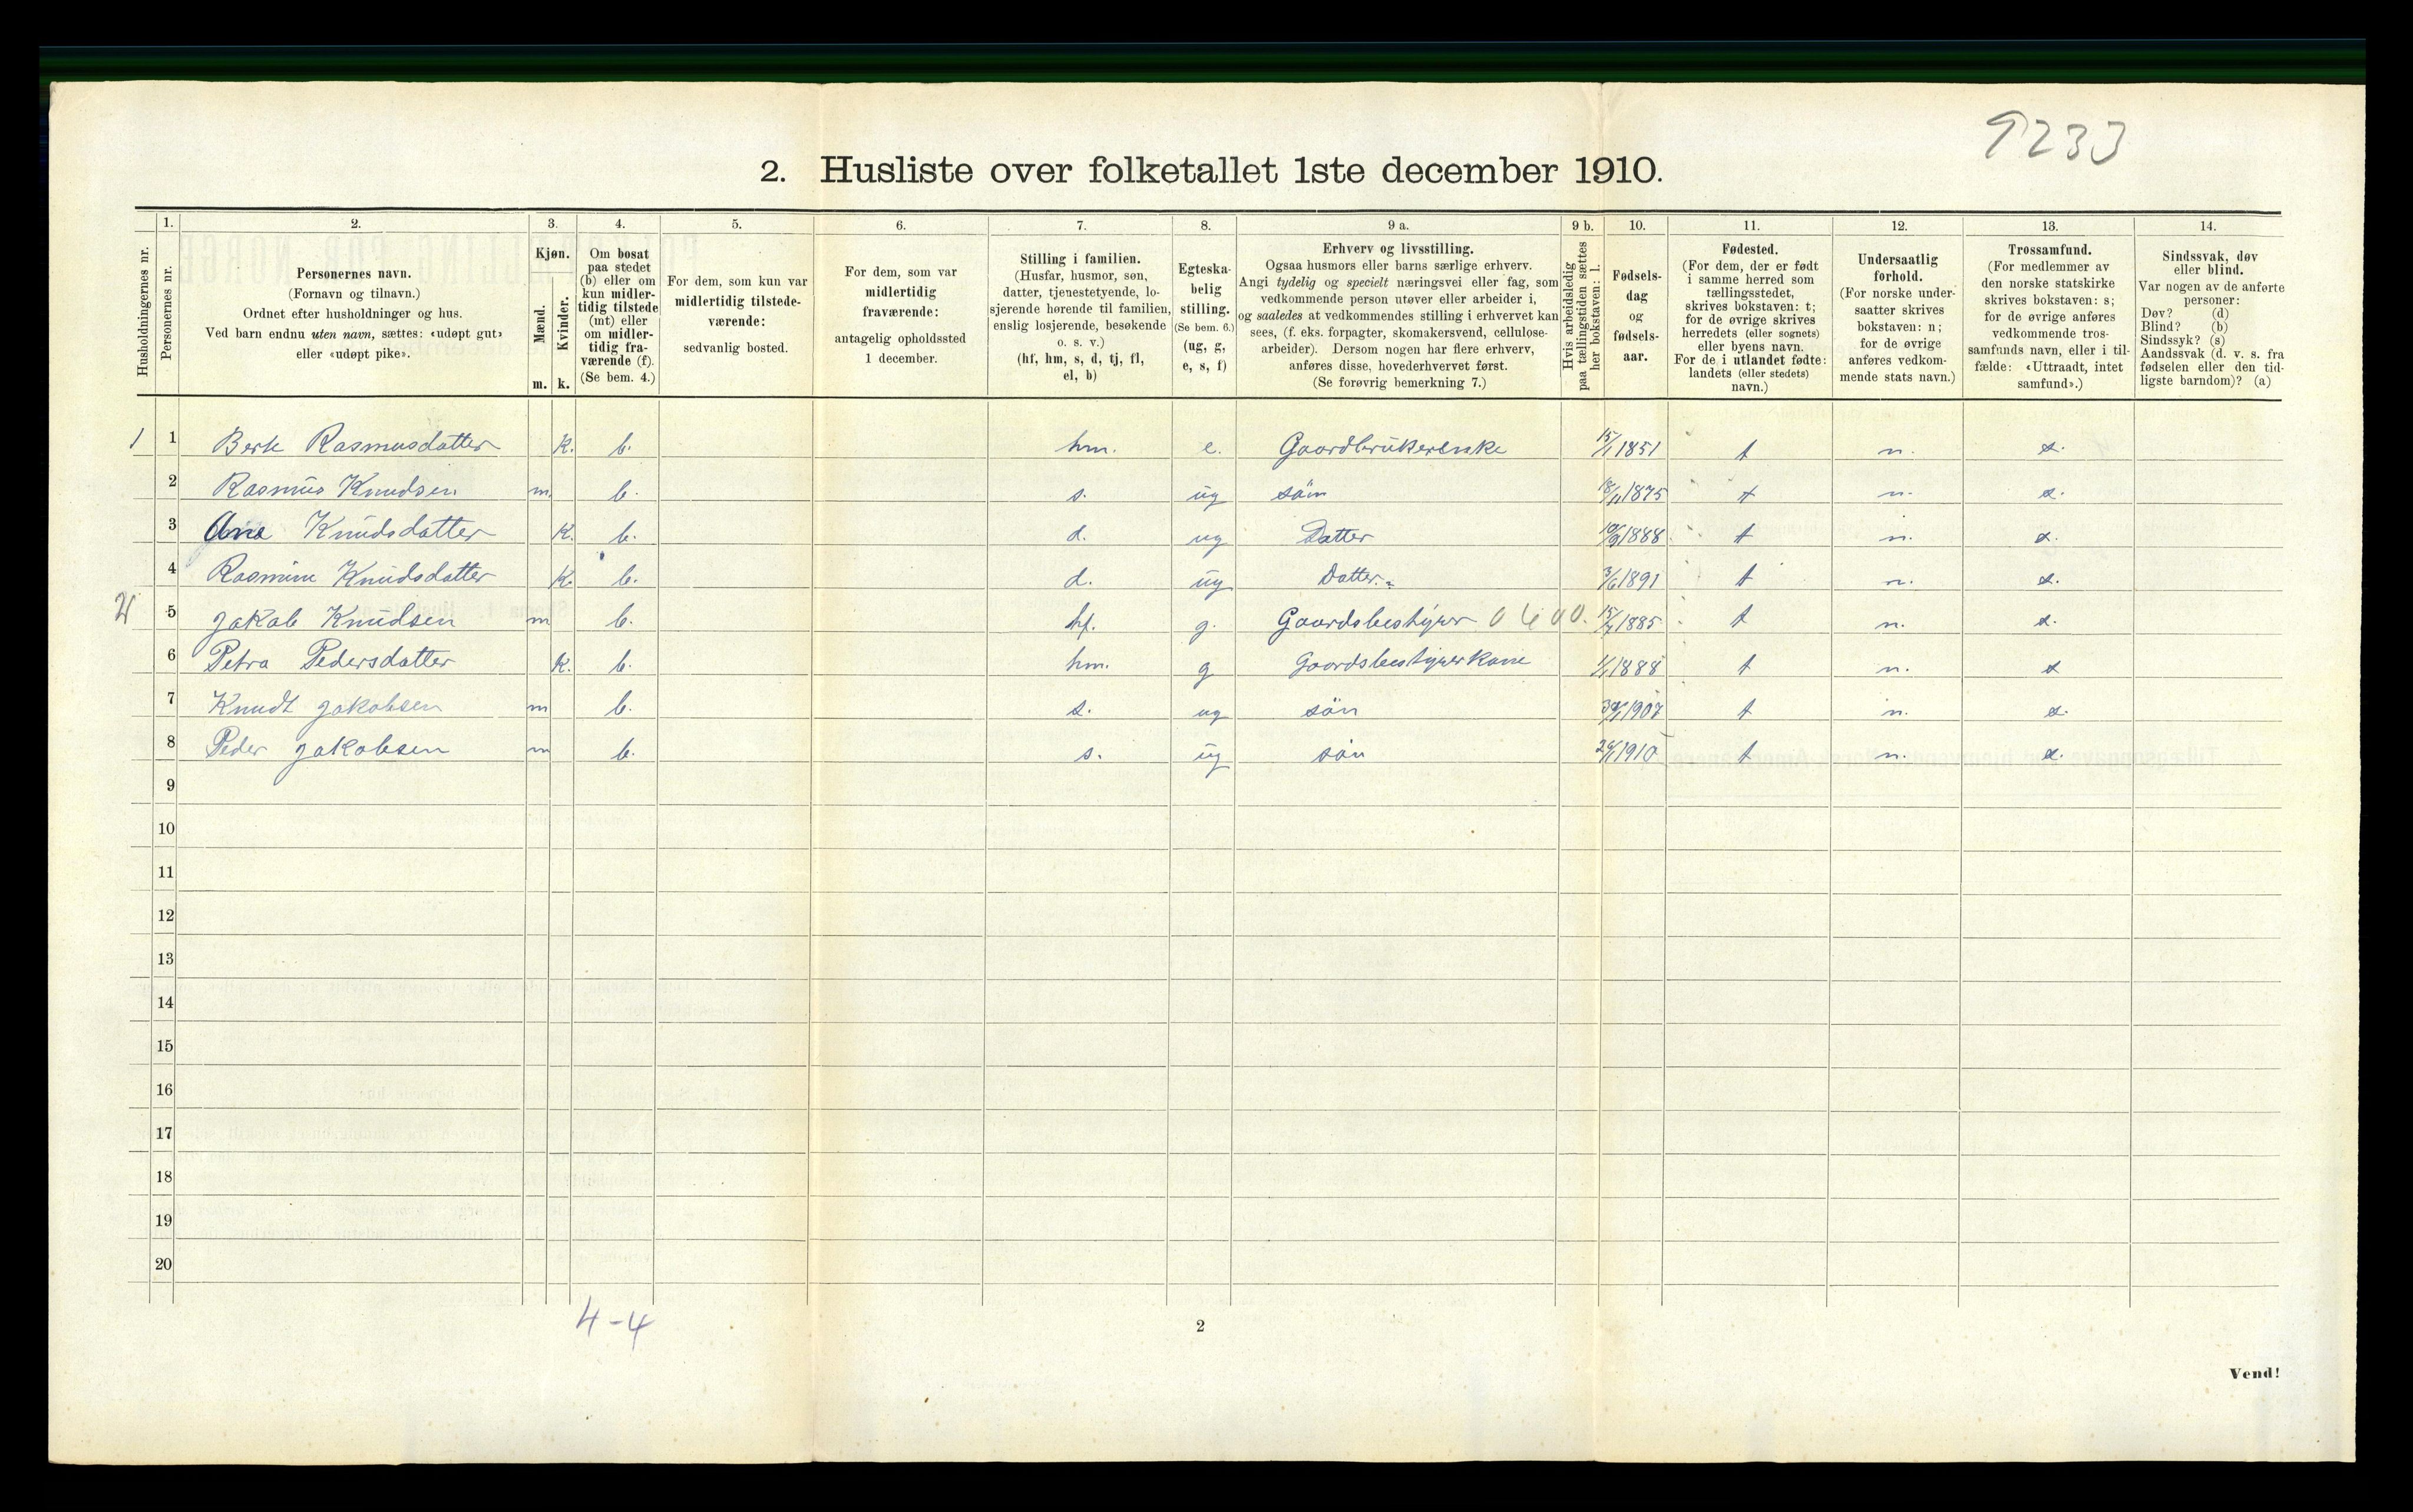 9233
2. Husliste over folketallet 1ste december 1910.
Husholdningernes nr.
1. Personernes nr.
2. Personernes navn. (Fornavn og tilnavn.) Ordnet efter husholdninger og hus. Ved barn endnu uten navn, sættes: «udøpt gut» eller «udøpt pike».
3. Kjøn. Mænd. m. Kvinder. k.
4. Om bosat paa stedet (b) eller om kun midlertidig tilstede (mt) eller om midlertidig fraværende (f). (Se bem. 4.)
5. For dem, som kun var midlertidig tilstedeværende: sedvanlig bosted.
6. For dem, som var midlertidig fraværende: antagelig opholdssted 1 december.
7. Stilling i familien. (Husfar, husmor, søn, datter, tjenestetyende, losjerende hørende til familien, enslig losjerende, besøkende o. s. v.) (hf, hm, s, d, tj, fl, el, b)
8. Egteskabelig stilling. (Se bem. 6.) (ug, g, e, s, f)
9 a. Erhverv og livsstilling. Ogsaa husmors eller barns særlige erhverv. Angi tydelig og specielt næringsvei eller fag, som vedkommende person utøver eller arbeider i, og saaledes at vedkommendes stilling i erhvervet kan sees, (f. eks. forpagter, skomakersvend, cellulosearbeider). Dersom nogen har flere erhverv, anføres disse, hovederhvervet først. (Se forøvrig bemerkning 7.)
9 b. Hvis arbeidsledig paa tællingstiden sættes her bokstaven: l.
10. Fødselsdag og fødselsaar.
11. Fødested. (For dem, der er født i samme herred som tællingsstedet, skrives bokstaven: t; for de øvrige skrives herredets (eller sognets) eller byens navn. For de i utlandet fødte: landets (eller stedets) navn.)
12. Undersaatlig forhold. (For norske undersaatter skrives bokstaven: n; for de øvrige anføres vedkommende stats navn.)
13. Trossamfund. (For medlemmer av den norske statskirke skrives bokstaven: s; for de øvrige anføres vedkommende trossamfunds navn, eller i tilfælde: «Uttraadt, intet samfund».)
14. Sindssvak, døv eller blind. Var nogen av de anførte personer: Døv? (d) Blind? (b) Sindssyk? (s) Aandssvak (d. v. s. fra fødselen eller den tidligste barndom)? (a)
1 1 Berte Rasmusdatter k. b. hm. e. Gaardbrukerenke 15/1 1851 t n. s.
2 Rasmus Knudsen m. b. s. ug søn 18/11 1875 t n. s.
3 Ane Knudsdatter k. b. d. ug Datter 10/9 1888 t n. s.
4 Rasmine Knudsdatter k. b. d. ug Datter 3/6 1891 t n. s.
2 5 Jakob Knudsen m b. hf. g. Gaardsbestyrer 0400. 15/7 1885 t n. s.
6 Petra Pedersdatter k. b. hm. g Gaardsbestyrerkone 1/1 1888 t n. s
7 Knudt Jakobsen m b. s. ug søn 1907 t n. s.
8 Peder Jakobsen m b. s. ug søn 1910 t n. s.
9
10
11
12
13
14
15
16
17
18
19
20
4-4
2
Vend!